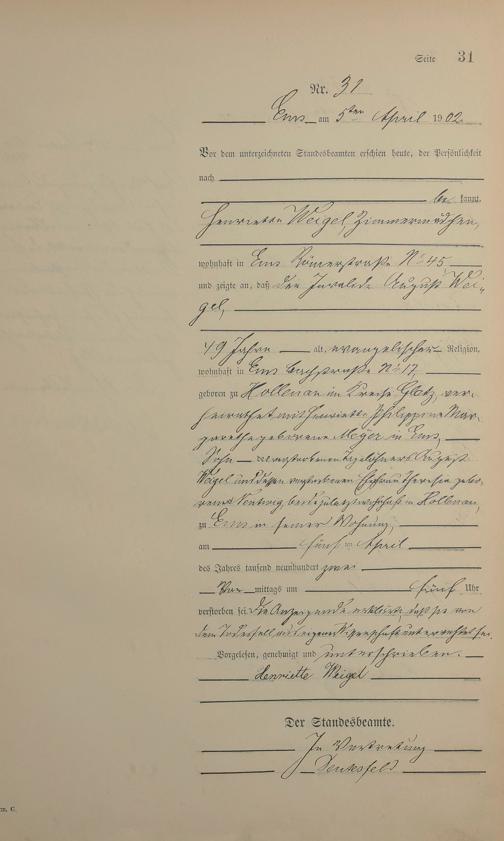 Seite 31
Nr. 31
Ems am 5ten April 1902
Vor dem unterzeichneten Standesbeamten erschien heute, der Persönlichkeit
nach
be kannt,
Henriette Weigel, Zimmermädchen,
wohnhaft in Ems Römerstraße No 45
und zeigte an, daß der Invalide August Wei-
gel,
49 Jahre alt, evangelischer Religion,
wohnhaft in Ems Bachstraße No 17,
geboren zu Hollenau im Kreise Glatz, ver-
heirathet mit Henriette Philippine Mar-
garethe geborene Meyer in Ems,
Sohn des verstorbenen Tagelöhners August
Weigel und dessen verstorbenen Ehefrau Theresia gebo-
renen Bentwig, beide zuletzt wohnhaft in Hollenau,
zu Ems in seiner Wohnung,
am fünften April
des Jahres tausend neunhundert zwei
Vor mittags um fünf Uhr
verstorben sei. Die Anzeigende erklärte, daß sie von
dem Todesfall aus eigener Wissenschaft unterrichtet sei.
Vorgelesen, genehmigt und unterschrieben.
Henriette Weigel
Der Standesbeamte.
In Vertretung